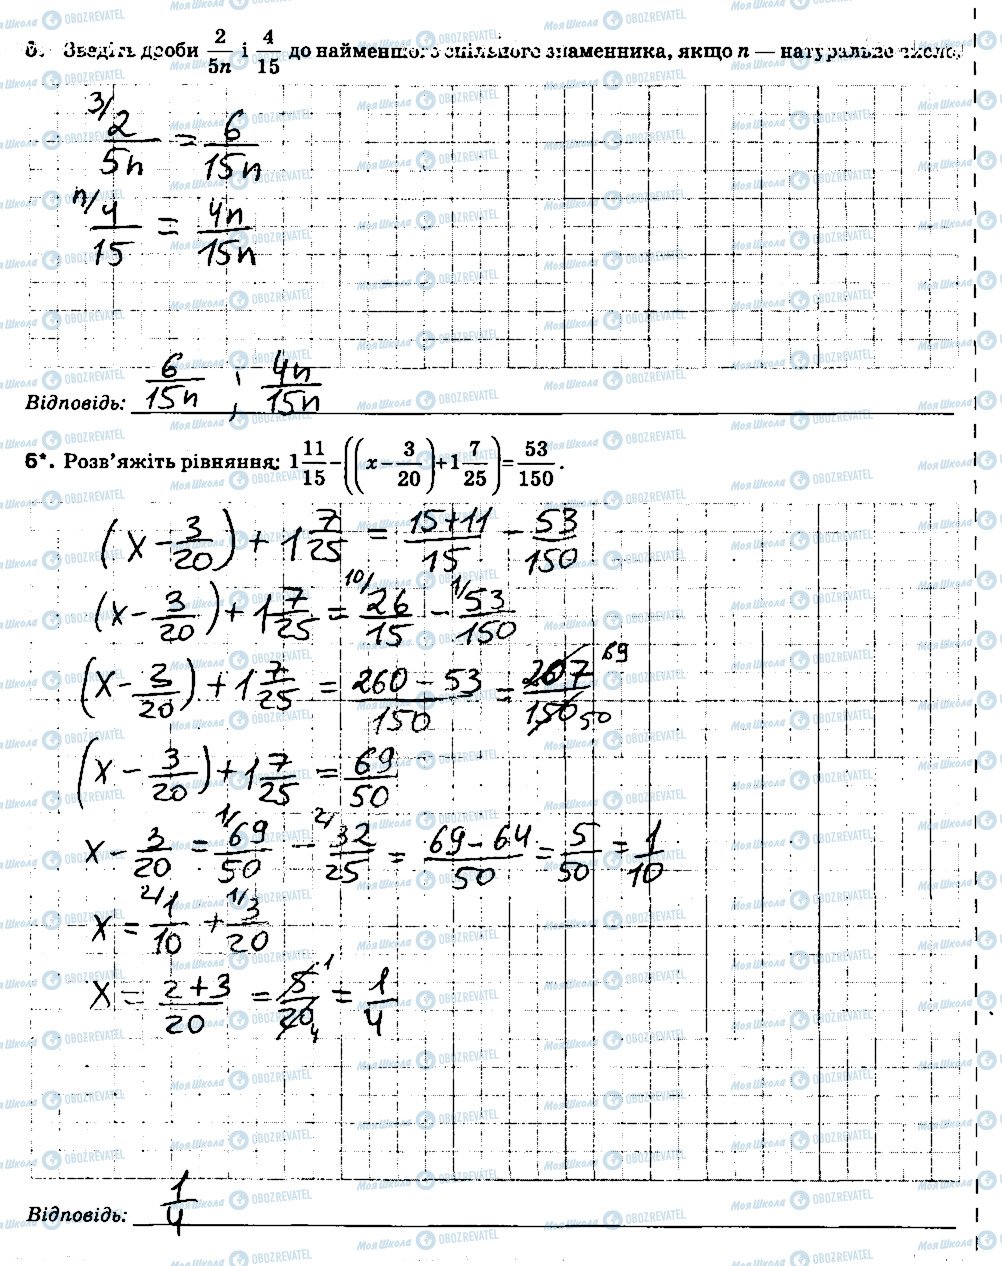 Зведіть дроби 2/5n і 4/15 до найменшого спільного знаменника, якщо n — натуральне число.
3/ 2/5n = 6/15n
n/ 4/15 = 4n/15n
Відповідь: 6/15n ; 4n/15n
6*. Розв'яжіть рівняння: 1 11/15 − ((x − 3/20) + 1 7/25) = 53/150.
(x − 3/20) + 1 7/25 = 15+11/15 − 53/150
(x − 3/20) + 1 7/25 = 10/ 26/15 − 1/ 53/150
(x − 3/20) + 1 7/25 = 260 − 53/150 = 207/150 69 50
(x − 3/20) + 1 7/25 = 69/50
x − 3/20 = 1/ 69/50 − 2/ 32/25 = 69 − 64/50 = 5/50 = 1/10
x = 2/ 1/10 + 1/ 3/20
x = 2+3/20 = 5/20 1 4 = 1/4
Відповідь: 1/4
МояШкола OBOZREVATEL